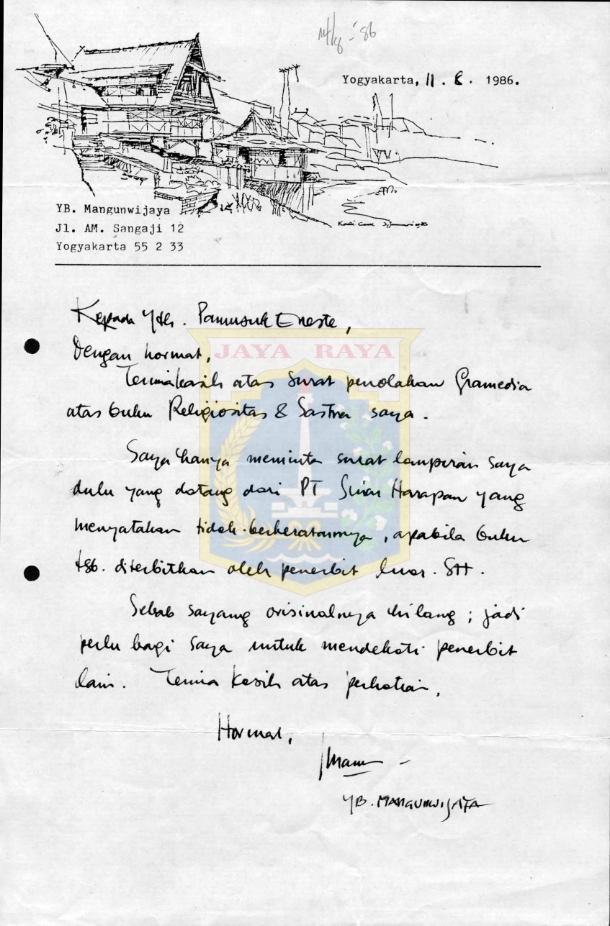 Yogyakarta, 11. 8. 1986.
YB. Mangunwijaya
Jl. AM. Sangaji 12
Yogyakarta 55 2 33
Kepada Yth. Pamusuk Eneste,
Dengan hormat,
JAYA RAYA
Terimakasih atas surat penolakan Gramedia
atas buku Religiositas & Sastra saya.
Saya hanya meminta surat lampiran saya
dulu yang datang dari PT Sinar Harapan yang
menyatakan tidak berkeratannya, apabila buku
tsb. diterbitkan oleh penerbit luar SH.
Sebab sayang orisinalnya hilang; jadi
perlu bagi saya untuk mendekati penerbit
lain. Terima kasih atas perhatian,
Hormat,
YB. MANGUNWIJAYA